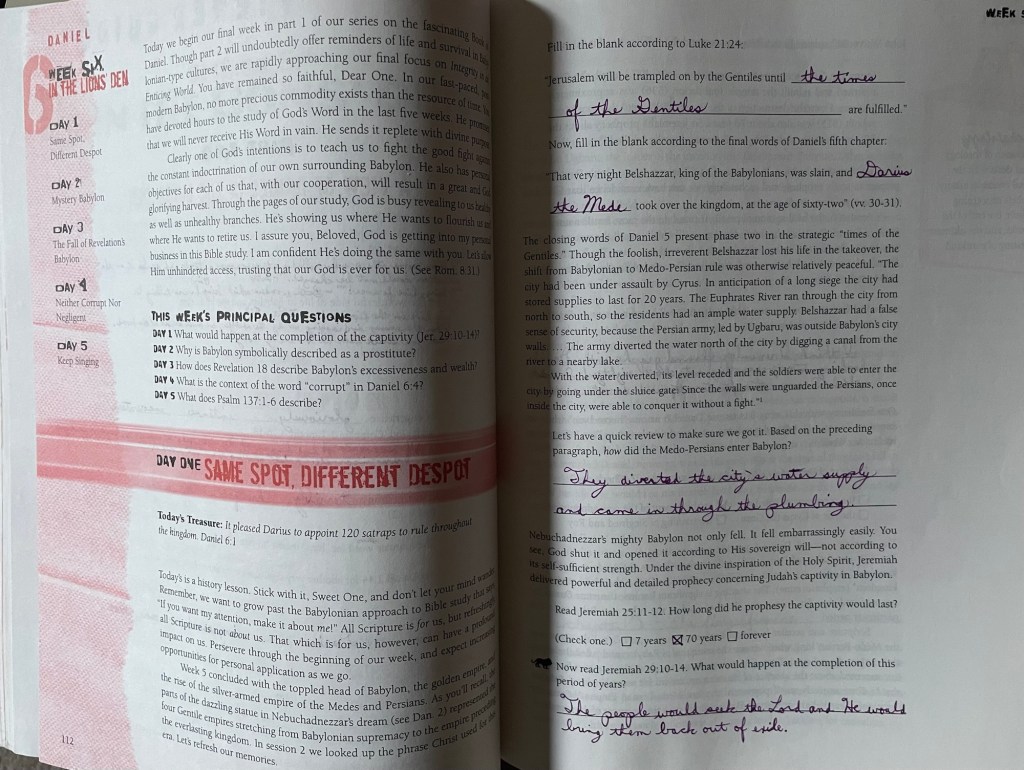 DANIEL
WEEK SIX
IN THE LIONS' DEN
6
DAY 1
Same Spot,
Different Despot
DAY 2
Mystery Babylon
DAY 3
The Fall of Revelation's
Babylon
DAY 4
Neither Corrupt Nor
Negligent
DAY 5
Keep Singing
Today we begin our final week in part 1 of our series on the fascinating Book of
Daniel. Though part 2 will undoubtedly offer reminders of life and survival in
lonian-type cultures, we are rapidly approaching our final focus on Integrity in an
Enticing World. You have remained so faithful, Dear One. In our fast-paced,
modern Babylon, no more precious commodity exists than the resource of time. You
have devoted hours to the study of God's Word in the last five weeks. He
that we will never receive His Word in vain. He sends it replete with divine
Clearly one of God's intentions is to teach us to fight the good fight against
the constant indoctrination of our own surrounding Babylon. He also has
objectives for each of us that, with our cooperation, will result in a great and
glorifying harvest. Through the pages of our study, God is busy revealing to us
as well as unhealthy branches. He's showing us where He wants to flourish us
where He wants to retire us. I assure you, Beloved, God is getting into my
business in this Bible study. I am confident He's doing the same with you. Let's
Him unhindered access, trusting that our God is ever for us. (See Rom. 8:31.)
THIS WEEK'S PRINCIPAL QUESTIONS
DAY 1 What would happen at the completion of the captivity (Jer. 29:10-14)?
DAY 2 Why is Babylon symbolically described as a prostitute?
DAY 3 How does Revelation 18 describe Babylon's excessiveness and wealth?
DAY 4 What is the context of the word "corrupt" in Daniel 6:4?
DAY 5 What does Psalm 137:1-6 describe?
DAY ONE SAME SPOT, DIFFERENT DESPOT
Today's Treasure: It pleased Darius to appoint 120 satraps to rule throughout
the kingdom. Daniel 6:1
Today's is a history lesson. Stick with it, Sweet One, and don't let your mind
Remember, we want to grow past the Babylonian approach to Bible study that
"If you want my attention, make it about me!" All Scripture is for us, but
all Scripture is not about us. That which is for us, however, can have a
impact on us. Persevere through the beginning of our week, and expect
opportunities for personal application as we go.
Week 5 concluded with the toppled head of Babylon, the golden empire, and
the rise of the silver-armed empire of the Medes and Persians. As you'll recall, the
parts of the dazzling statue in Nebuchadnezzar's dream (see Dan. 2) represented the
four Gentile empires stretching from Babylonian supremacy to the empire
the everlasting kingdom. In session 2 we looked up the phrase Christ used for
era. Let's refresh our memories.
112
WEEK
Fill in the blank according to Luke 21:24:
"Jerusalem will be trampled on by the Gentiles until the times
of the Gentiles are fulfilled."
Now, fill in the blank according to the final words of Daniel's fifth chapter:
"That very night Belshazzar, king of the Babylonians, was slain, and Darius
the Mede took over the kingdom, at the age of sixty-two" (vv. 30-31).
The closing words of Daniel 5 present phase two in the strategic "times of the
Gentiles." Though the foolish, irreverent Belshazzar lost his life in the takeover, the
shift from Babylonian to Medo-Persian rule was otherwise relatively peaceful. "The
city had been under assault by Cyrus. In anticipation of a long siege the city had
stored supplies to last for 20 years. The Euphrates River ran through the city from
north to south, so the residents had an ample water supply. Belshazzar had a false
sense of security, because the Persian army, led by Ugbaru, was outside Babylon's city
walls. ... The army diverted the water north of the city by digging a canal from the
river to a nearby lake.
With the water diverted, its level receded and the soldiers were able to enter the
city by going under the sluice gate. Since the walls were unguarded the Persians, once
inside the city, were able to conquer it without a fight."1
Let's have a quick review to make sure we got it. Based on the preceding
paragraph, how did the Medo-Persians enter Babylon?
They diverted the city's water supply
and came in through the plumbing.
Nebuchadnezzar's mighty Babylon not only fell. It fell embarrassingly easily. You
see, God shut it and opened it according to His sovereign will—not according to
its self-sufficient strength. Under the divine inspiration of the Holy Spirit, Jeremiah
delivered powerful and detailed prophecy concerning Judah's captivity in Babylon.
Read Jeremiah 25:11-12. How long did he prophesy the captivity would last?
(Check one.) ☐ 7 years ☒ 70 years ☐ forever
Now read Jeremiah 29:10-14. What would happen at the completion of this
period of years?
The people would seek the Lord and He would
bring them back out of exile.